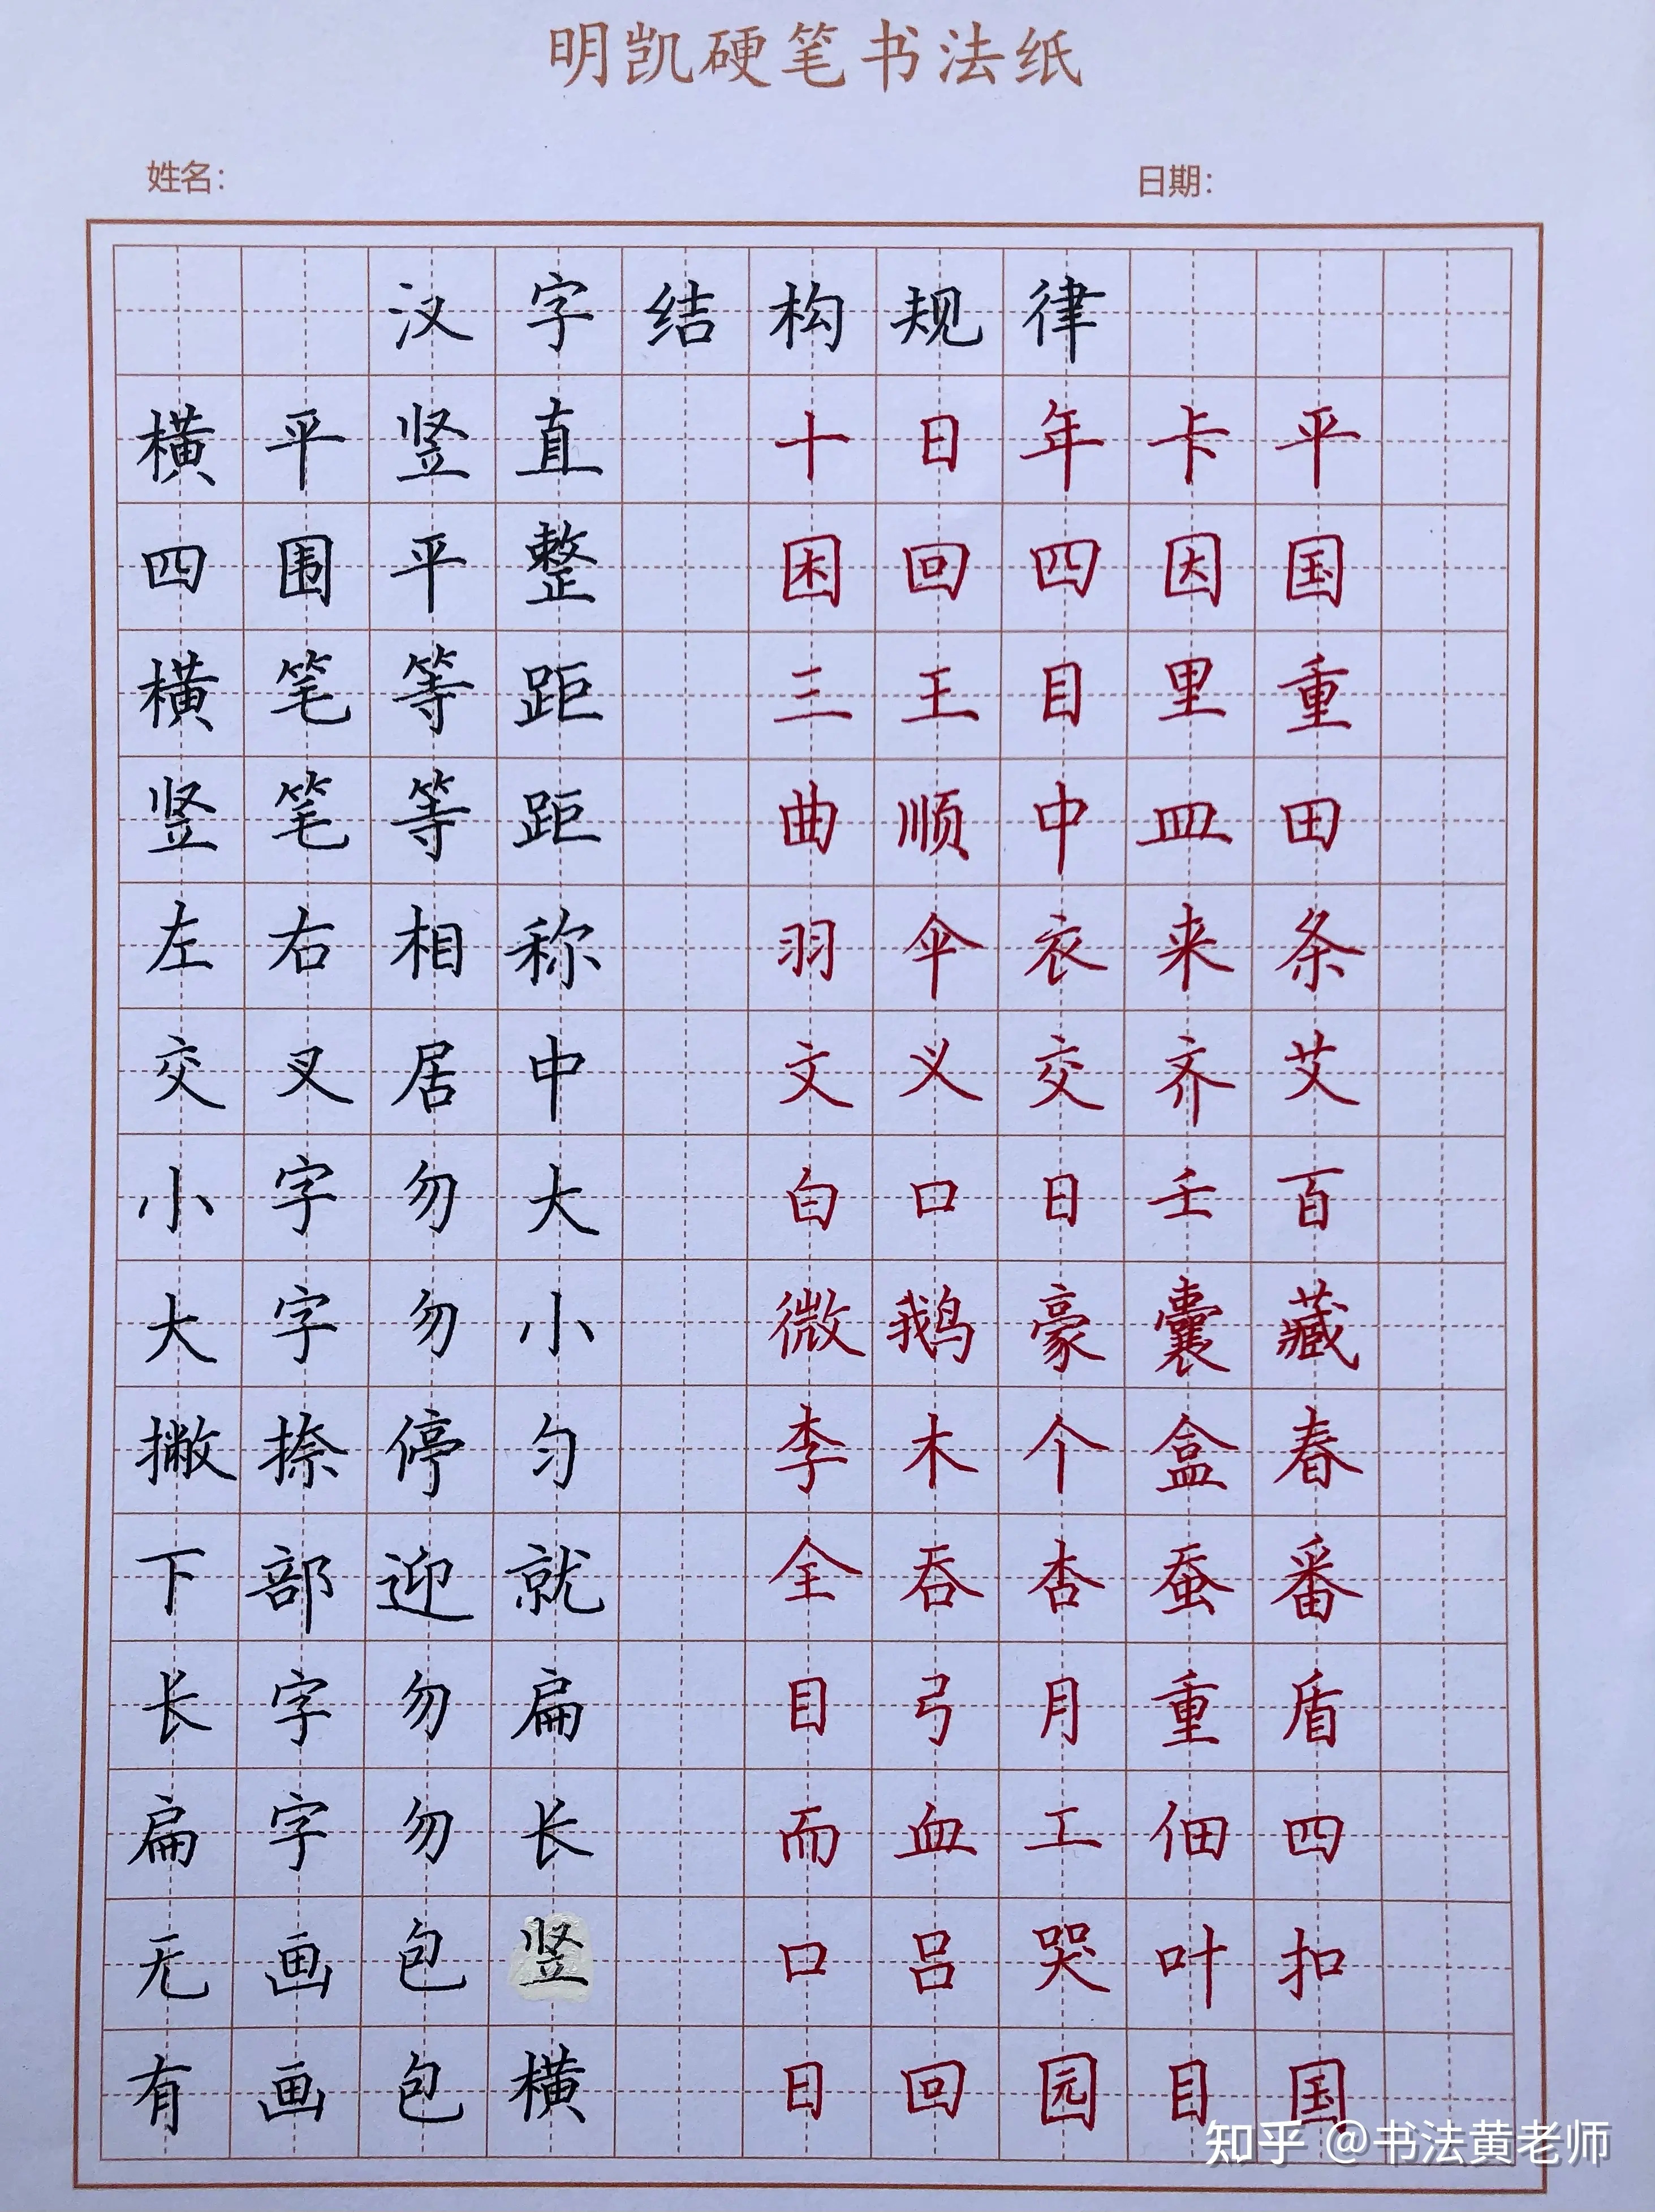 明凯硬笔书法纸
姓名: 日期:
汉字结构规律
横平竖直 十日年卡平
四围平整 困回四因国
横笔等距 三王目里重
竖笔等距 曲顺中皿田
左右相称 羽伞衣来条
交叉居中 文义交齐艾
小字勿大 白口日壬百
大字勿小 微鹅豪囊藏
撇捺停匀 李木个盒春
下部迎就 全吞杏蚕番
长字勿扁 目弓月重盾
扁字勿长 而血工佃四
无画包竖 口吕哭叶扣
有画包横 日回园目国
知乎 @书法黄老师